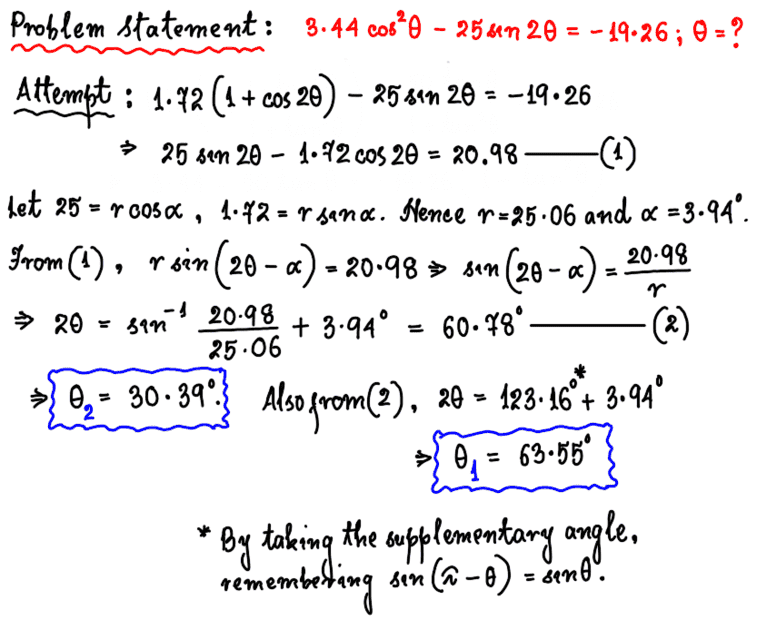 Problem statement: 3.44 cos²θ - 25 sin 2θ = -19.26; θ = ?
Attempt: 1.72 (1 + cos 2θ) - 25 sin 2θ = -19.26
⇒ 25 sin 2θ - 1.72 cos 2θ = 20.98 ——— (1)
Let 25 = r cos α, 1.72 = r sin α. Hence r = 25.06 and α = 3.94°.
From (1), r sin (2θ - α) = 20.98 ⇒ sin (2θ - α) = 20.98/r
⇒ 2θ = sin⁻¹ 20.98/25.06 + 3.94° = 60.78° ——— (2)
⇒ θ₂ = 30.39°. Also from (2), 2θ = 123.16°* + 3.94°
⇒ θ₁ = 63.55°
* By taking the supplementary angle,
remembering sin (π - θ) = sin θ.